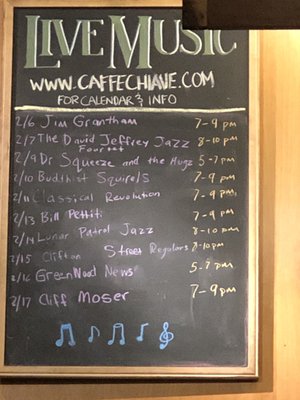 LIVE MUSIC
WWW.CAFFECHIAVE.COM
FOR CALENDAR & INFO
2/6 Jim Grantham 7-9 pm
2/7 The David Jeffrey Jazz 8-10 pm
Fourtet
2/9 Dr Squeeze and the Hugz 5-7 pm
2/10 Buddhist Squirels 7-9 pm
2/11 Classical Revolution 7-9 pm
2/13 Bill Pettiti 7-9 pm
2/14 Lunar Patrol Jazz 8-10 pm
2/15 Clifton Street Regulars 8-10pm
2/16 GreenWood News 5-7 pm
2/17 Cliff Moser 7-9pm